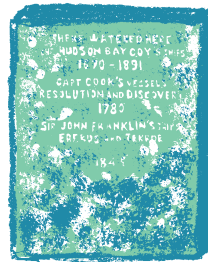 THERE WATERED HERE
THE HUDSON BAY COY'S SHIPS
1670 - 1891
CAPT COOK'S VESSELS
RESOLUTION AND DISCOVERY
1780
SIR JOHN FRANKLIN'S SHIPS
EREBUS AND TERROR
1845